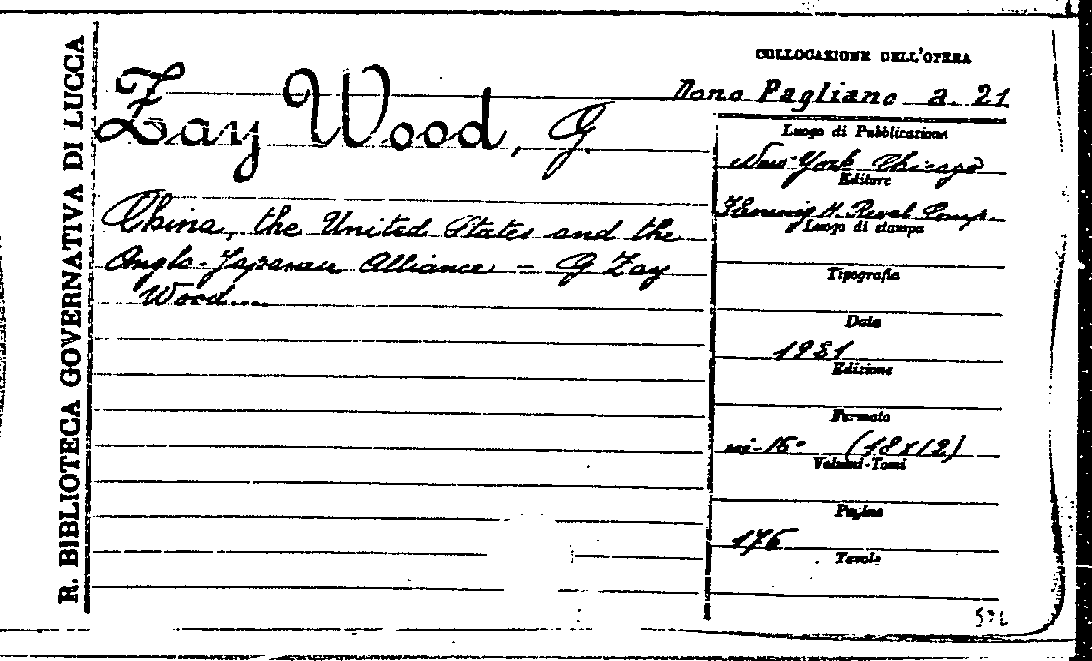 R. BIBLIOTECA GOVERNATIVA DI LUCCA
Zay Wood, G.
China, the United States and the
Anglo-Japanese Alliance - G Zay
Wood...
COLLOCAZIONE DELL'OPERA
Dono Pagliano a. 21
Luogo di Pubblicazione
New-York Chicago
Editore
Fleming H. Revel Comp.
Luogo di stampa
Tipografia
Data
1921
Edizione
Formato
in-16° (18x12)
Volumi-Tomi
Pagine
176
Tavole